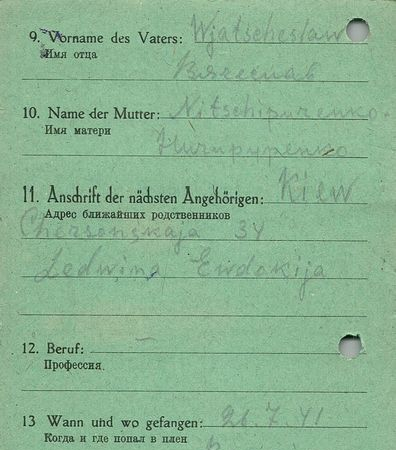 9. Vorname des Vaters: Wjatscheslaw
Имя отца Вячеслав
10. Name der Mutter: Nitschipurenko.
Имя матери
11. Anschrift der nächsten Angehörigen: Kiew
Адрес ближайших родственников
Chersonskaja 34
Ledwina Ewdokija
12. Beruf:
Профессия
13 Wann und wo gefangen: 26.7.41
Когда и где попал в плен